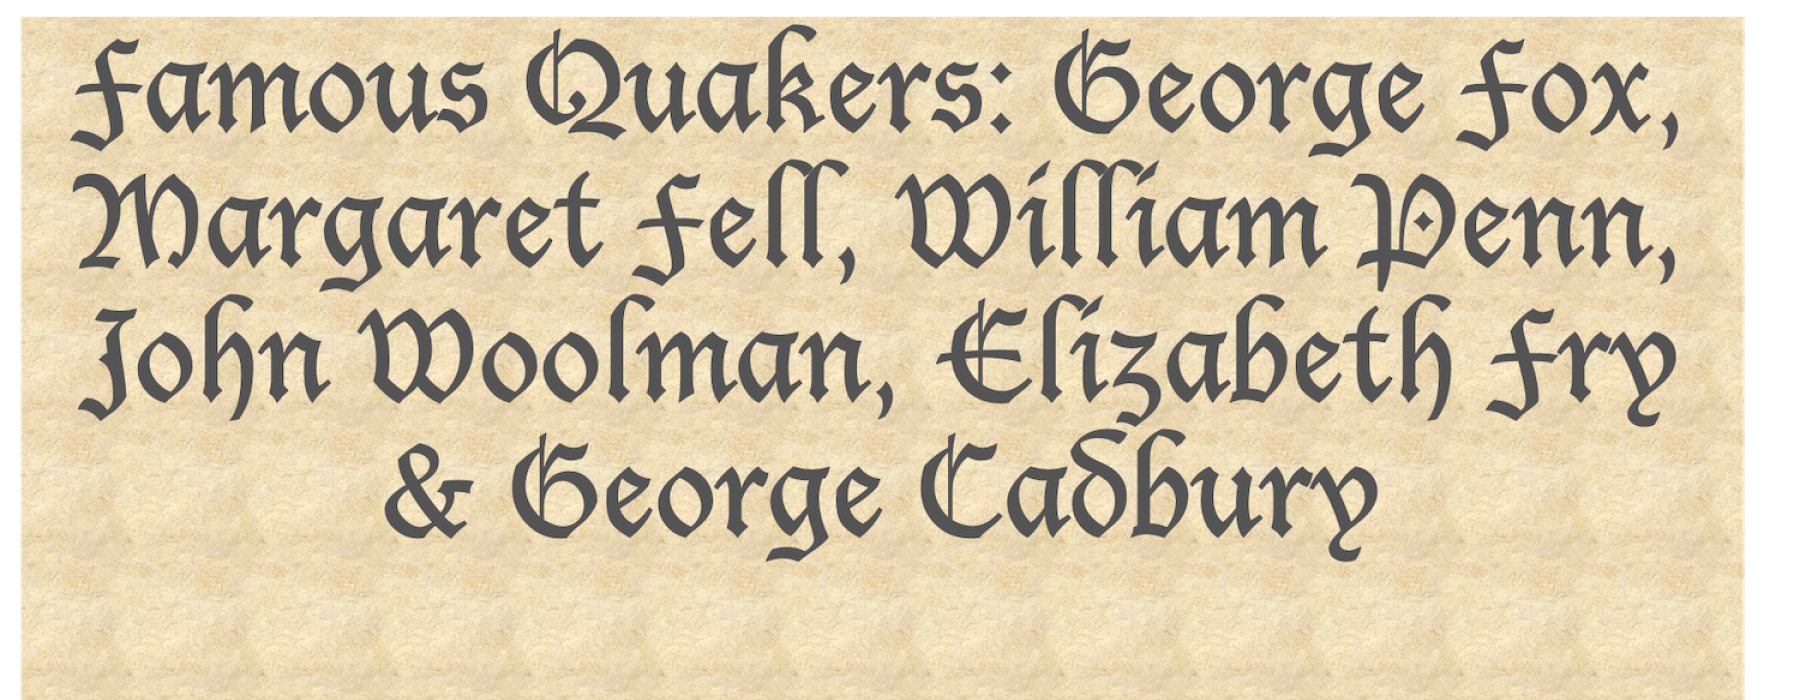 Famous Quakers: George Fox,
Margaret Fell, William Penn,
John Woolman, Elizabeth Fry
& George Cadbury